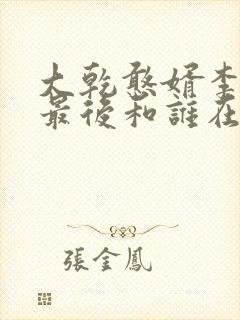 大乾憨婿李
最後和誰在
張金鳳